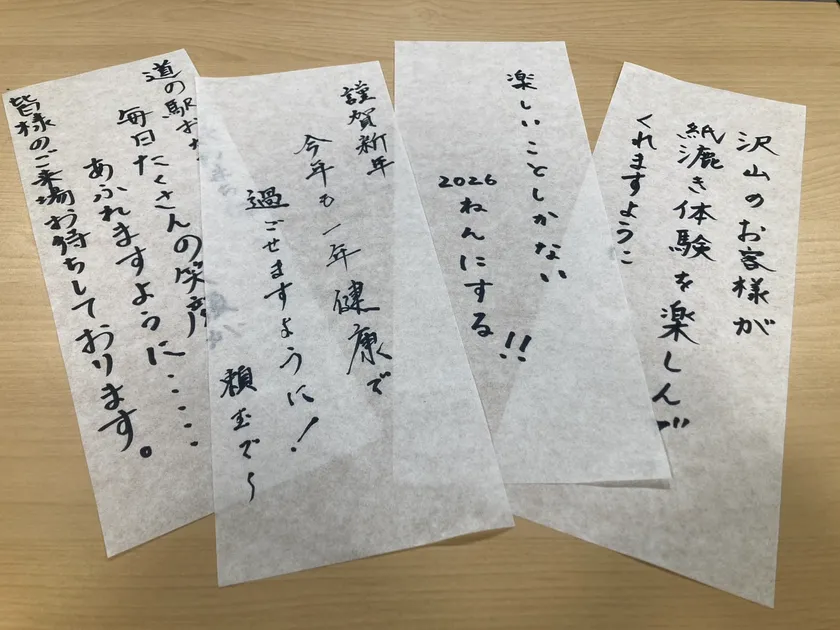 沢山のお客様が
紙漉き体験を楽しんで
くれますように
楽しいことしかない
2026ねんにする!!
謹賀新年
今年も一年健康で
過ごせますように!
頼むで～
道の駅お
毎日たくさんの笑顔が
あふれますように・・・・・
皆様のご来場お待ちしております。